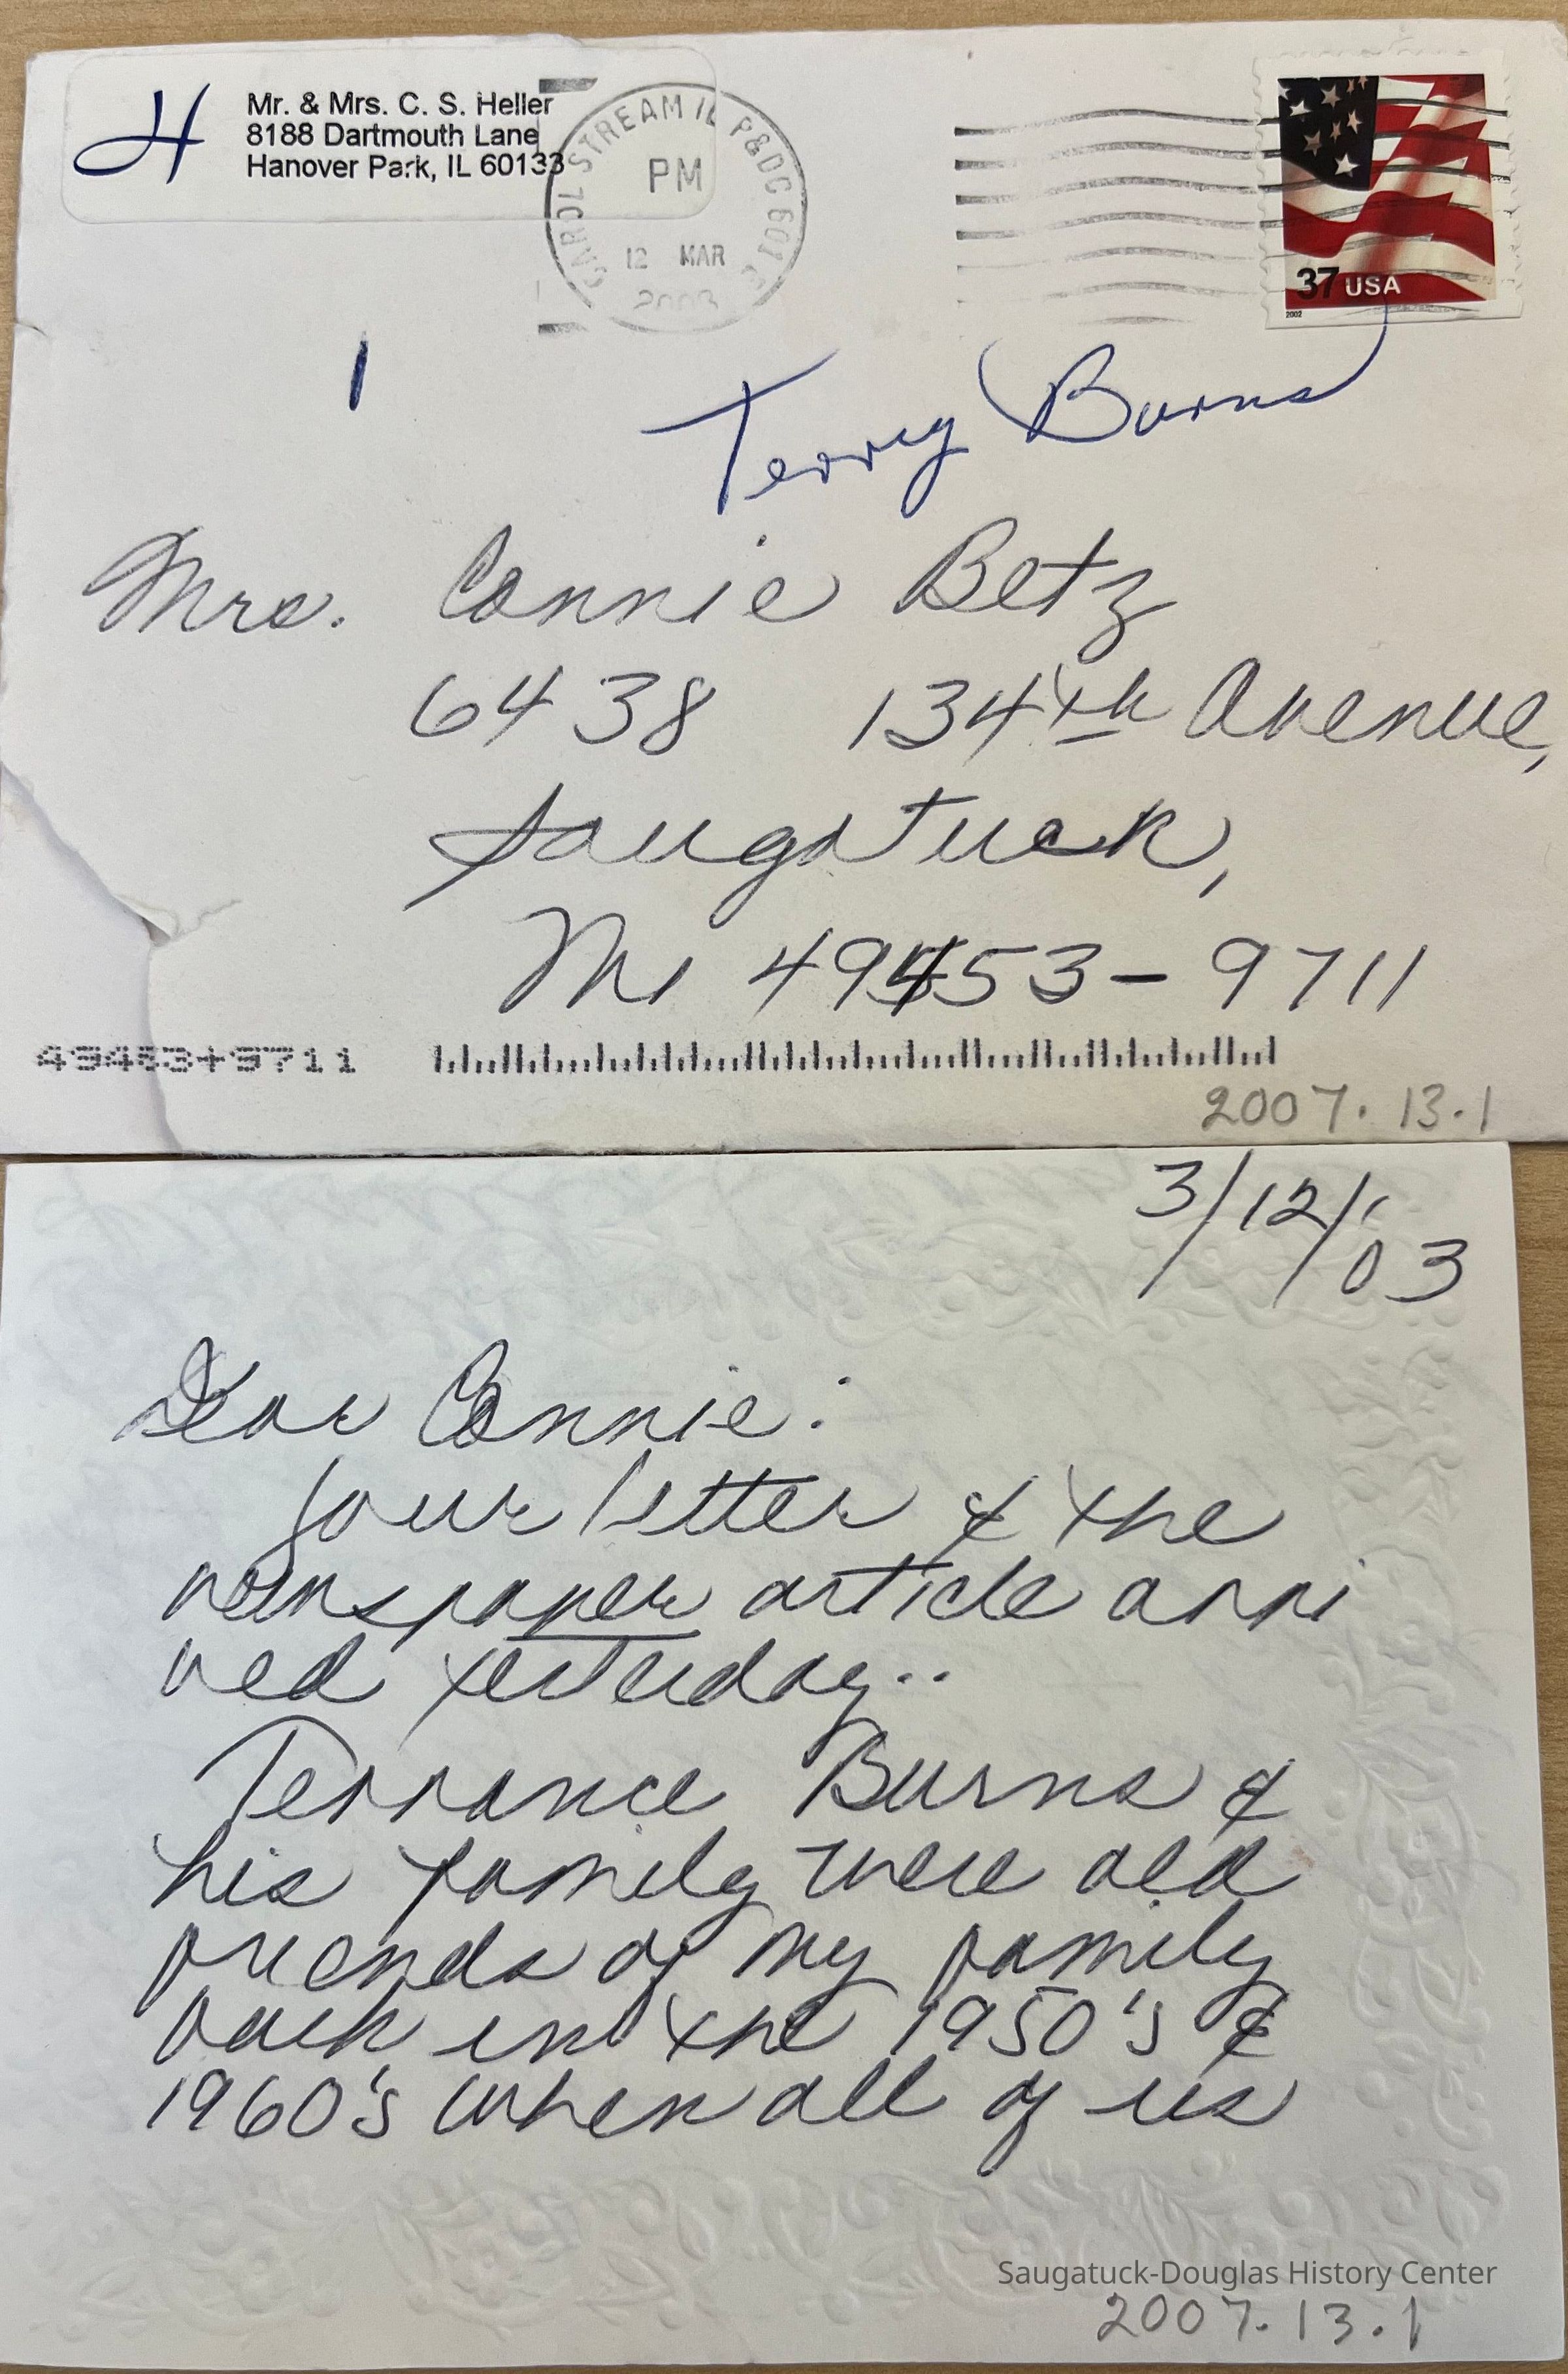 H
Mr. & Mrs. C. S. Heller
8188 Dartmouth Lane
Hanover Park, IL 60133
CAROL STREAM IL P&DC 601
PM
12 MAR
2003
37 USA
2002
1
Terry Burns
Mrs. Connie Betz
6438 134th Avenue,
Saugatuck,
Mi 49453-9711
49453+9711
2007.13.1
3/12/'03
Dear Connie:
Your letter & the
newspaper article arri
ved yesterday..
Terrance Burns &
his family were old
friends of my family
back in the 1950's &
1960's when all of us
Saugatuck-Douglas History Center
2007.13.1